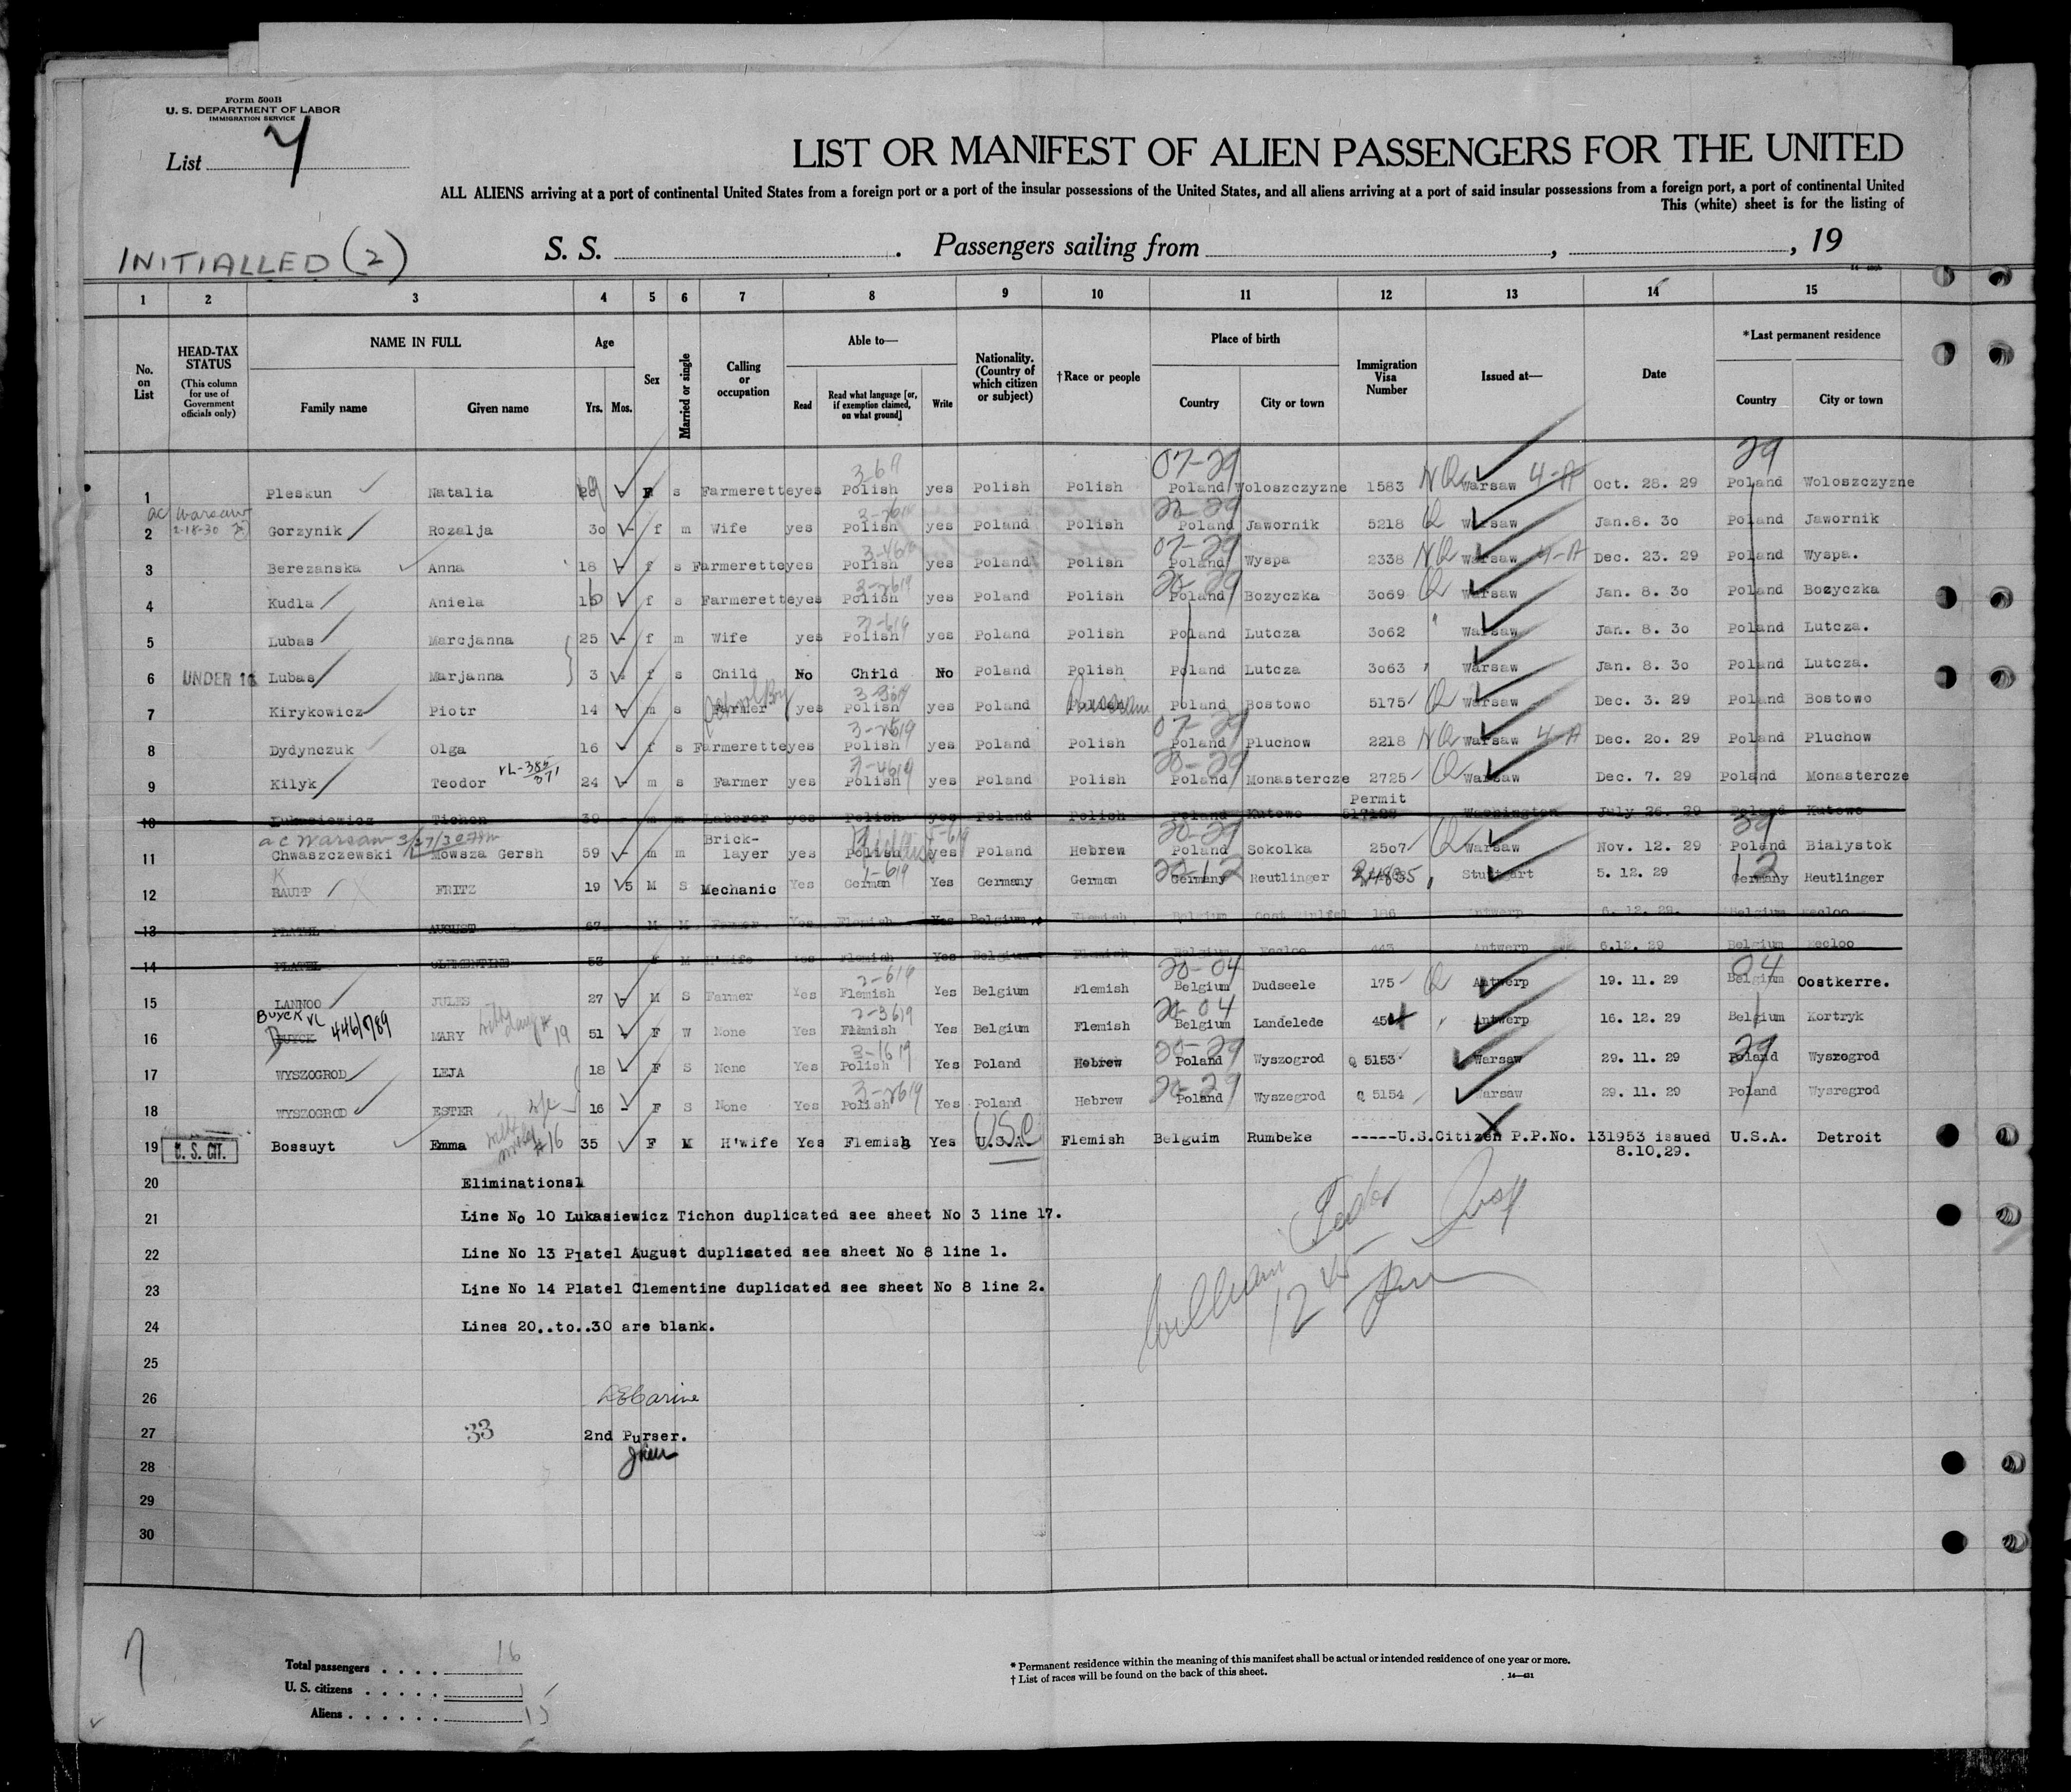 Form 500B
U. S. DEPARTMENT OF LABOR
IMMIGRATION SERVICE
List 7
LIST OR MANIFEST OF ALIEN PASSENGERS FOR THE UNITED
ALL ALIENS arriving at a port of continental United States from a foreign port or a port of the insular possessions of the United States, and all aliens arriving at a port of said insular possessions from a foreign port, a port of continental United
This (white) sheet is for the listing of
INITIALLED (2)
S. S. . Passengers sailing from , , 19
1 2 3 4 5 6 7 8 9 10 11 12 13 14 15
No. on List
HEAD-TAX STATUS (This column for use of Government officials only)
NAME IN FULL
Family name Given name
Age
Yrs. Mos.
Sex
Married or single
Calling or occupation
Able to—
Read Read what language [or, if exemption claimed, on what ground] Write
Nationality. (Country of which citizen or subject)
†Race or people
Place of birth
Country City or town
Immigration Visa Number
Issued at—
Date
*Last permanent residence
Country City or town
07-29 29
1 Pleskun Natalia s Farmerette yes Polish yes Polish Polish Poland Woloszczyzne 1583 NQ Warsaw 4-A Oct. 28. 29 Poland Woloszczyzne
ac Warsaw 2-18-30
2 Gorzynik Rozalja 30 f m Wife yes Polish yes Poland Polish Poland Jawornik 5218 Q Warsaw Jan.8. 30 Poland Jawornik
07-29
3 Berezanska Anna 18 f s Farmerette yes Polish yes Poland Polish Poland Wyspa 2338 NQ Warsaw 4-A Dec. 23. 29 Poland Wyspa.
4 Kudla Aniela 16 f s Farmerette yes Polish yes Poland Polish Poland Bozyczka 3069 Q Warsaw Jan. 8. 30 Poland Bozyczka
5 Lubas Marcjanna 25 f m Wife yes Polish yes Poland Polish Poland Lutcza 3062 " Warsaw Jan. 8. 30 Poland Lutcza.
6 UNDER 16 Lubas Marjanna 3 f s Child No Child No Poland Polish Poland Lutcza 3063 Warsaw Jan. 8. 30 Poland Lutcza.
7 Kirykowicz Piotr 14 m s Farmer School Boy yes Polish yes Poland Polish Russian Poland Bostowo 5175 Q Warsaw Dec. 3. 29 Poland Bostowo
07-29
8 Dydynczuk Olga 16 f s Farmerette yes Polish yes Poland Polish Poland Pluchow 2218 NQ Warsaw 4-A Dec. 20. 29 Poland Pluchow
20-29
9 Kilyk Teodor 24 m s Farmer yes Polish yes Poland Polish Poland Monastercze 2725 Q Warsaw Dec. 7. 29 Poland Monastercze
Permit
10 Lukasiewicz Tichon 30 m m Laborer yes Polish yes Poland Polish Poland Kutowo Washington July 26. 29 Poland Kutowo
ac Warsaw 3/27/30
20-29 29
11 Chwaszczewski Mowsza Gersh 59 m m Brick-layer yes Polish yes Poland Hebrew Poland Sokolka 2507 Q Warsaw Nov. 12. 29 Poland Bialystok
20-12 12
12 RAUPP FRITZ 19 5 M S Mechanic Yes German Yes Germany German Germany Reutlinger Stuttgart 5. 12. 29 Germany Reutlinger
13 PLATEL AUGUST 67 M M Farmer Yes Flemish Yes Belgium Flemish Belgium 186 Antwerp 6. 12. 29. Belgium Eecloo
14 PLATEL CLEMENTINE 53 F M H'wife Yes Flemish Yes Belgium Flemish Belgium Eecloo 443 Antwerp 6.12. 29 Belgium Eecloo
20-04 04
15 LANNOO JULES 27 M S Farmer Yes Flemish Yes Belgium Flemish Belgium Dudseele 175 Q Antwerp 19. 11. 29 Belgium Oostkerre.
BUYCK VL 446/789
20-04
16 BUYCK MARY 51 F W None Yes Flemish Yes Belgium Flemish Belgium Landelede 454 Antwerp 16. 12. 29 Belgium Kortryk
20-29 29
17 WYSZOGROD LEJA 18 F S None Yes Polish Yes Poland Hebrew Poland Wyszogrod Q 5153 Warsaw 29. 11. 29 Poland Wysrogrod
20-29
18 WYSZOGROD ESTER 16 F S None Yes Polish Yes Poland Hebrew Poland Wyszegrod Q 5154 Warsaw 29. 11. 29 Poland Wysregrod
19 U. S. CIT. Bossuyt Emma 35 F M H'wife Yes Flemish Yes U.S.A. USC Flemish Belguim Rumbeke -----U.S.Citizen P.P.No. 131953 issued 8.10.29. U.S.A. Detroit
20 Eliminational
21 Line No 10 Lukasiewicz Tichon duplicated see sheet No 3 line 17.
22 Line No 13 Platel August duplicated see sheet No 8 line 1.
23 Line No 14 Platel Clementine duplicated see sheet No 8 line 2.
24 Lines 20..to..30 are blank.
25
26
27 33 2nd Purser.
28
29
30
William
12 45 pm
7
Total passengers . . . . 16
U. S. citizens . . . . . 1
Aliens . . . . . . 15
* Permanent residence within the meaning of this manifest shall be actual or intended residence of one year or more.
† List of races will be found on the back of this sheet.
14—431